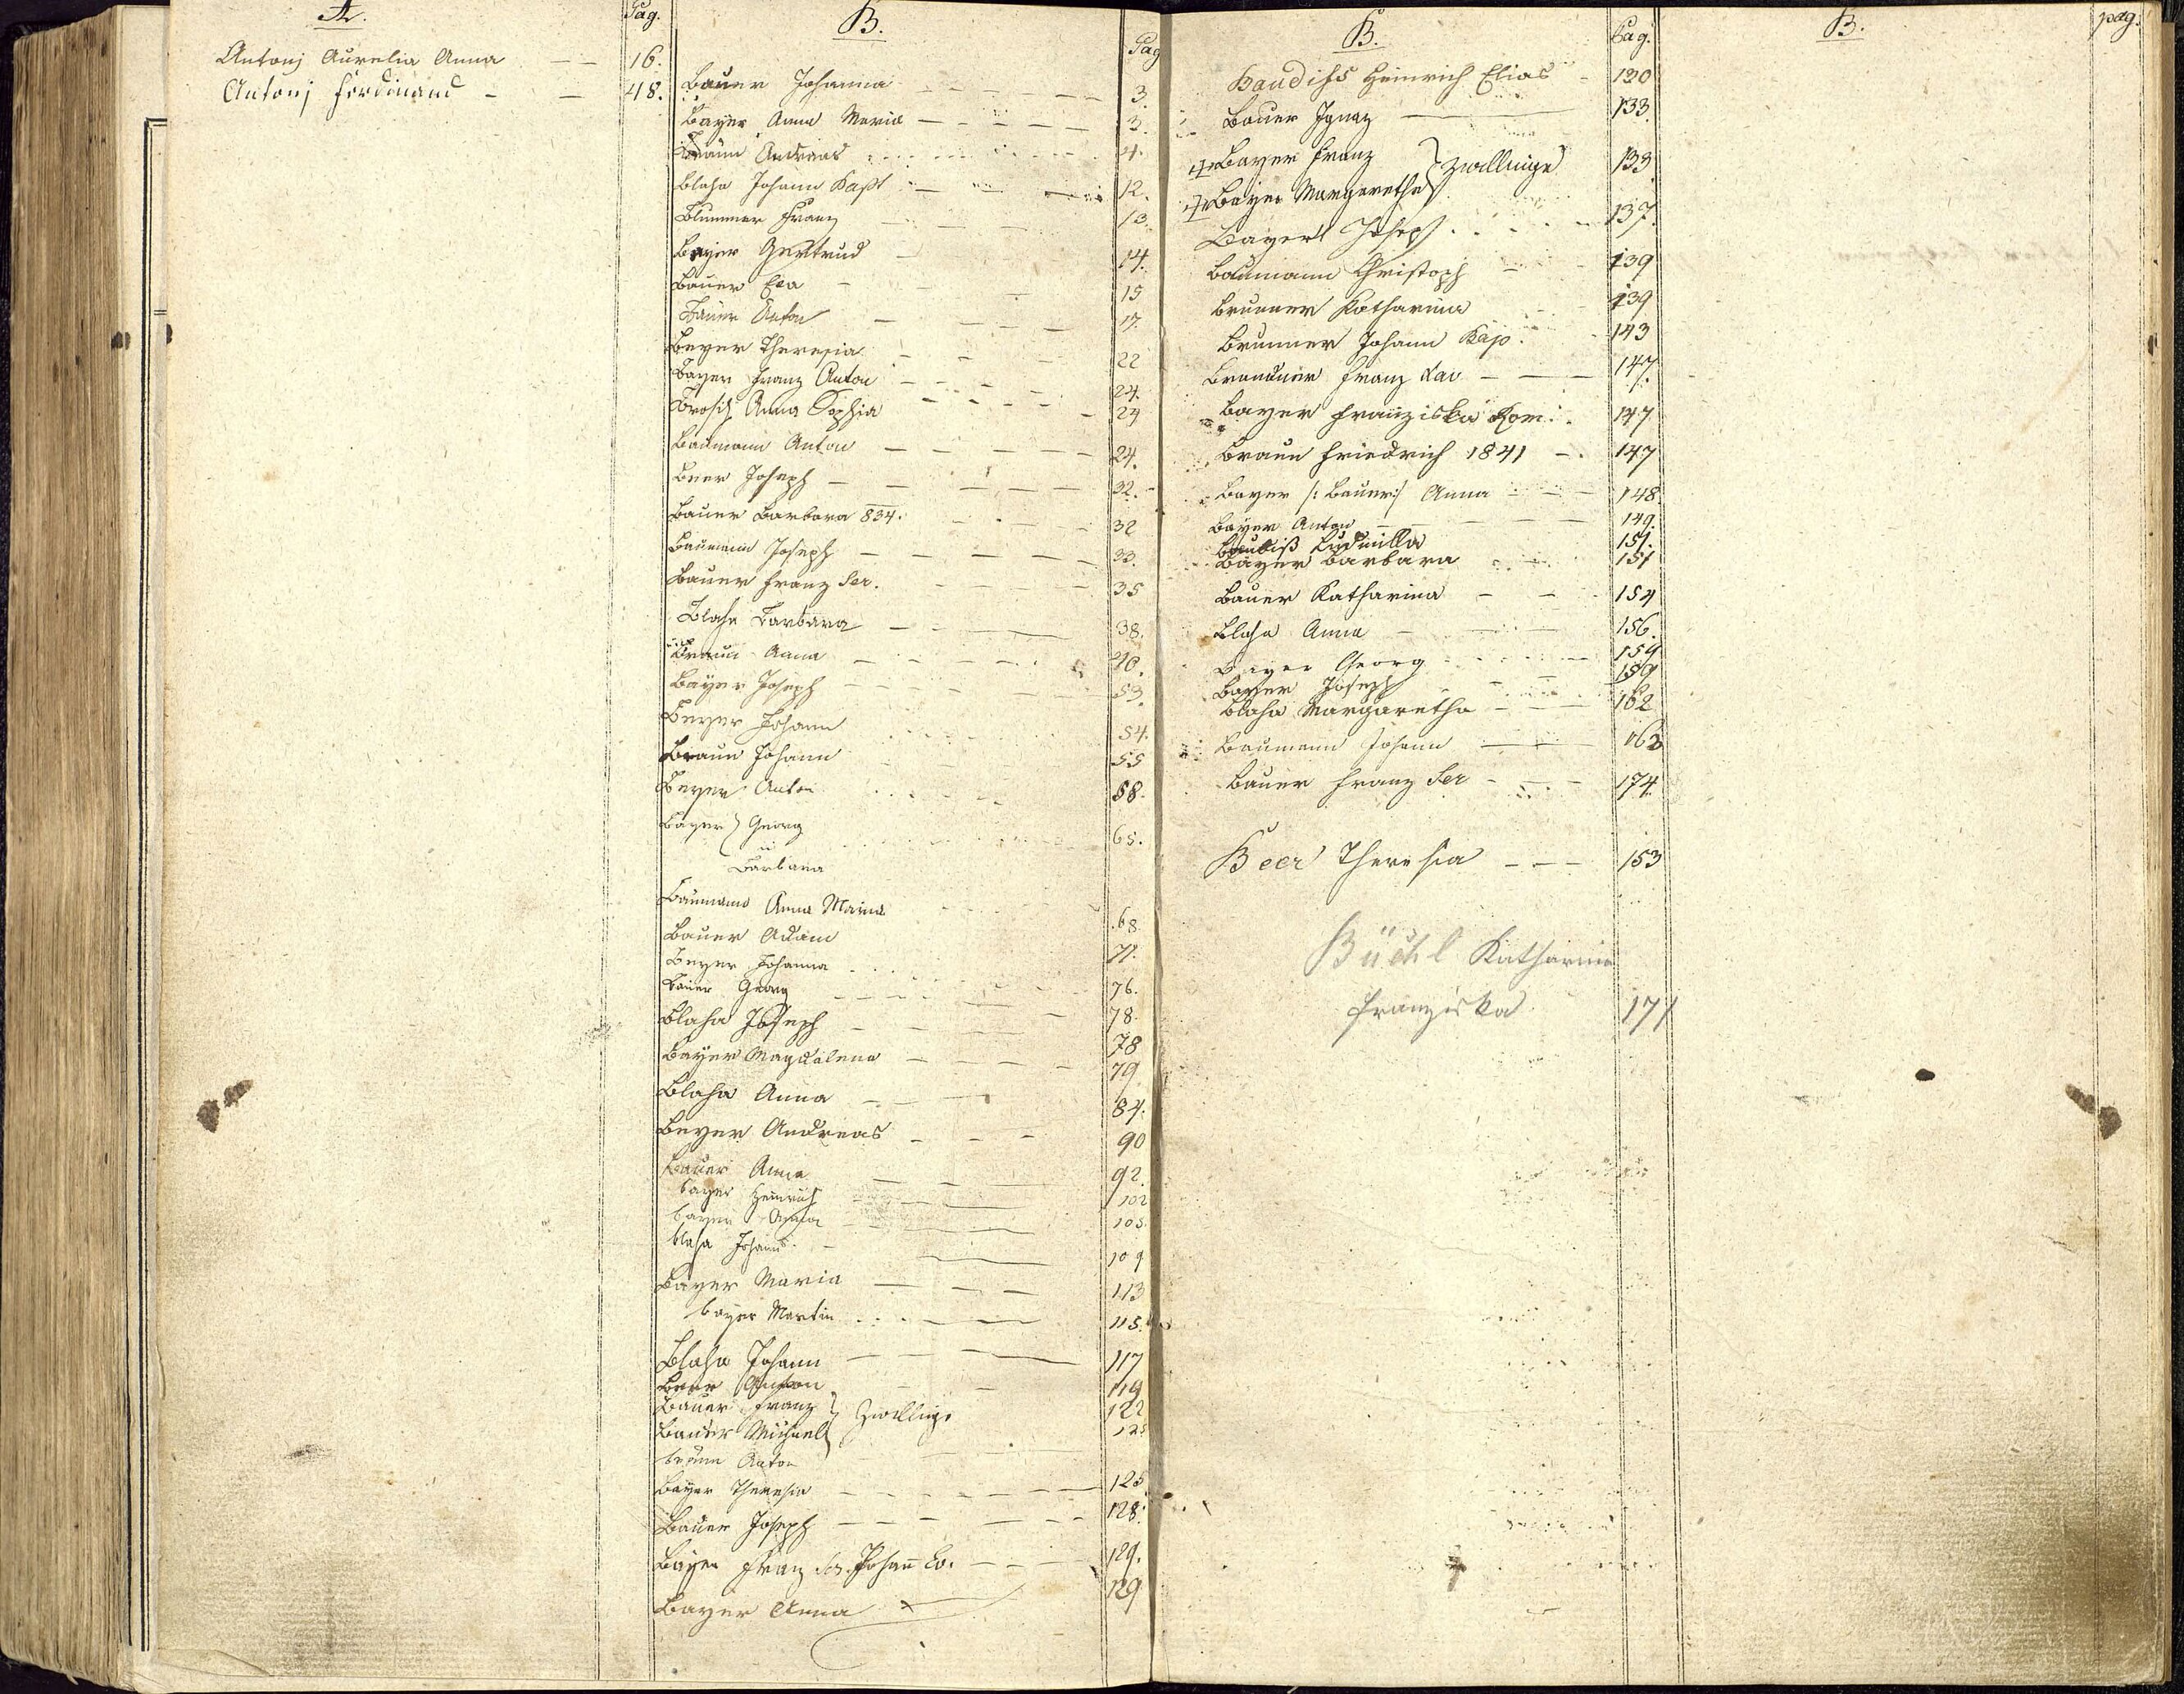 A.
Pag.
Antonj Aurelia Anna — — 16.
Antonj Ferdinand — — 48.
B.
Pag
Bauer Johanna 3.
Bayer Anna Maria 3.
Braun Andreas 4.
Blaha Johann Bapt 12.
Blummer Franz 13.
Bayer Gertrud 14.
Bauer Eva 15
Bauer Anton 17.
Beyer Theresia 22
Bayer Franz Anton 24.
Brosch Anna Sophia 24
Baumann Anton 24.
Beer Joseph 32.
Bauer Barbara 834. 32
Baumann Joseph 33.
Bauer Franz Ser. 35
Blaha Barbara 38.
Braun Anna 40.
Bayer Joseph 53.
Beyer Johann 54.
Braun Johann 55
Beyer Anton 58.
Bayer } Georg 65.
u
Barbara
Baumann Anna Maria 68
Bauer Adam 71.
Beyer Johanna 76.
Bauer Georg 78.
Blaha Joseph 78
Bayer Magdalena 79
Blaha Anna 84.
Beyer Andreas 90
Bauer Anna 92.
Bayer Heinrich 102
Bayer Anna 105.
Blaha Johann 109
Bayer Maria 113
Bayer Martin 115.
Blaha Johann 117
Beer Anton 119
Bauer Franz } Zwillinge 122
Bauer Michael
Braun Anton 125
Bayer Theresia 125.
Bauer Joseph 128.
Bayer Franz Johann Ev. 129.
Bayer Anna 129
B.
Pag.
Baudiss Heinrich Elias 130
Bauer Ignaz 133.
Bayer Franz } Zwillinge 133
Bayer Margaretha
Bayerl Joseph 137.
Baumann Christoph 139
Brunner Katharina 139
Brunner Johann Bap. 143
Brandner Franz Xav 147.
Bayer Franziska Rom. 147
Braun Friedrich 1841 147
Bayer /: Bauer :/ Anna 148
Bayer Anton 149.
Baudiß Ludmilla 151.
Bayer Barbara 151
Bauer Katharina 154
Blaha Anna 156.
Bayer Georg 159
Bayer Joseph 159
Blaha Margaretha 162
Baumann Johann 163
Bauer Franz Ser 174.
Beer Theresia 153
Büchl Katharina
Franziska 171
B.
pag.